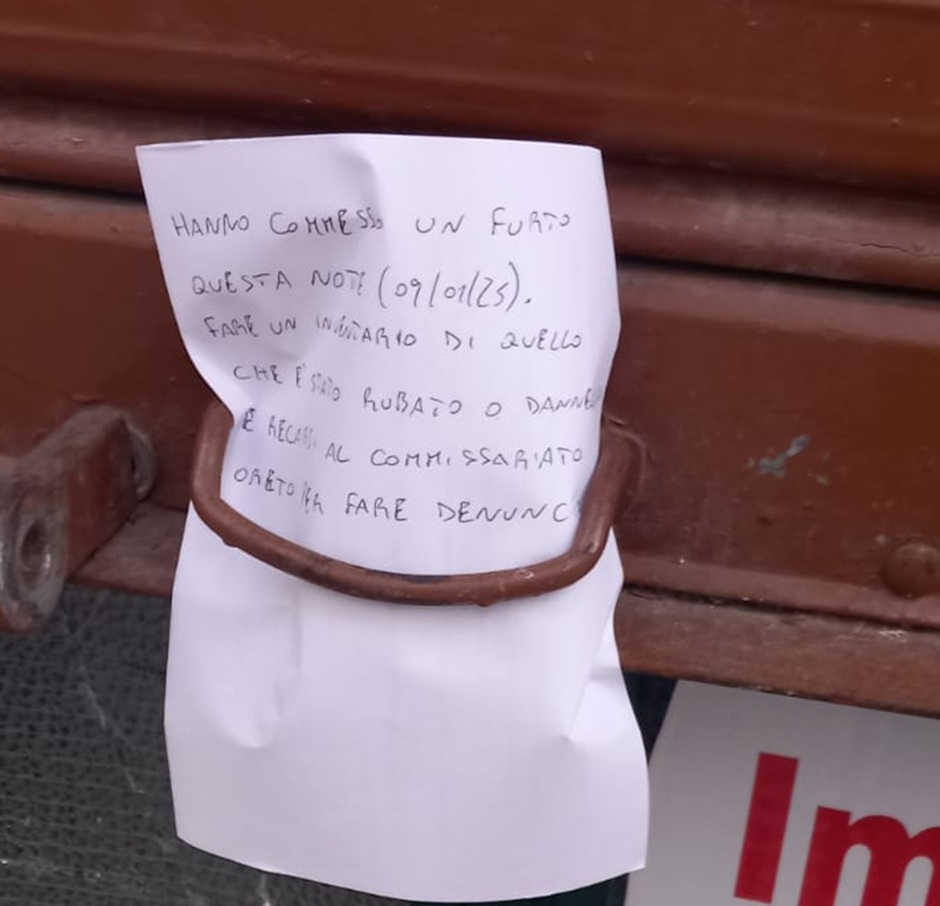 HANNO COMMESSO UN FURTO
QUESTA NOTE (09/01/25).
FARE UN INVENTARIO DI QUELLO
CHE E' STATO RUBATO O DANNE
E RECARSI AL COMMISSARIATO
ORETO PER FARE DENUNC
Im